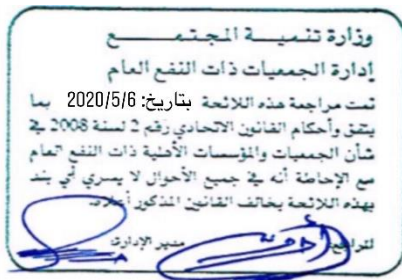 وزارة تنميـــة المجتمـــــع
إدارة الجمعيات ذات النفع العام
تمت مراجعة هذه اللائحة بتاريخ: 2020/5/6 بما
يتفق وأحكام القانون الاتحادي رقم 2 لسنة 2008 في
شأن الجمعيات والمؤسسات الأهلية ذات النفع العام
مع الإحاطة أنه في جميع الأحوال لا يسري أي بند
بهذه اللائحة يخالف القانون المذكور أعلاه.
المراجع: مدير الإدارة: